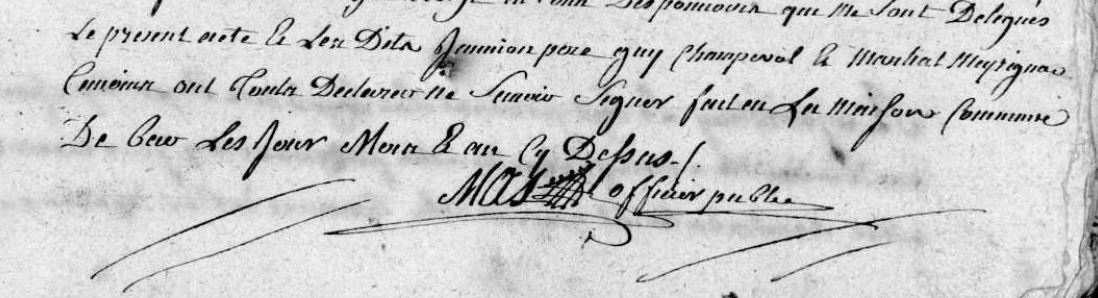 en vertu Des pouvoirs qui me sont Delegués
Le present acte Et Les Dits Jeannion pere guy Champeval Et Martial Meyrignac
temoins ont touts Declarer ne Scavoir Signer fait en La maison Commune
De Ceux Les Jour Mois Et an Cy Dessus
MAS officier public